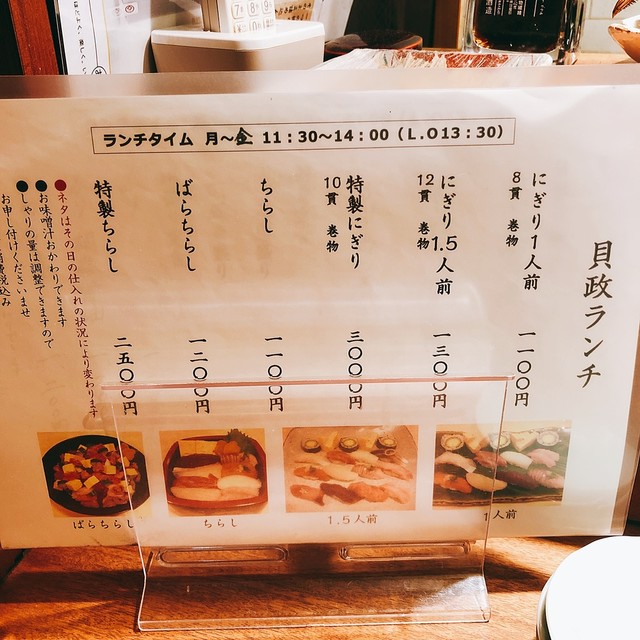 ランチタイム 月〜金 11:30〜14:00(L.O13:30)
貝政ランチ
にぎり1人前 一一〇〇円
8貫 巻物
にぎり1.5人前 一三〇〇円
12貫 巻物
特製にぎり 三〇〇〇円
10貫 巻物
ちらし 一一〇〇円
ばらちらし 一二〇〇円
特製ちらし 二五〇〇円
●ネタはその日の仕入れの状況により変わります
●お味噌汁おかわりできます
●しゃりの量は調整できますので
お申し付けくださいませ
消費税込み
ばらちらし
ちらし
1.5人前
1人前